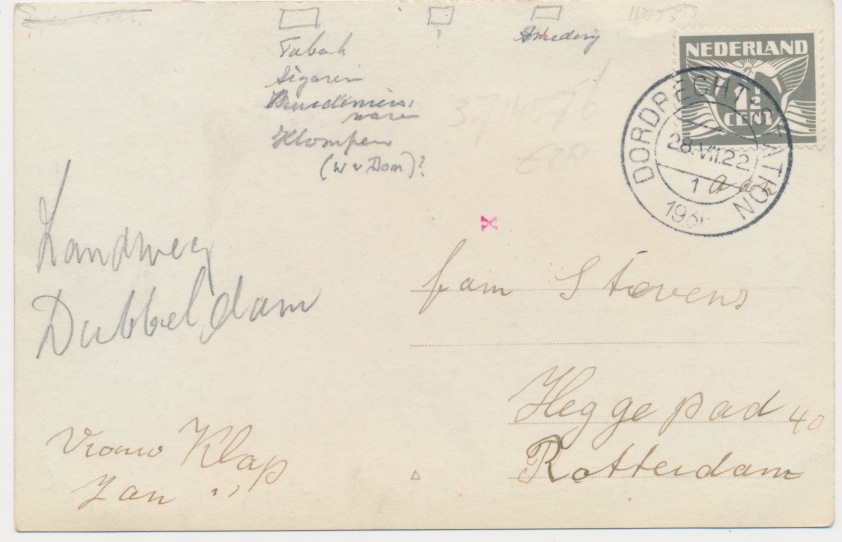 ?
Tabak
Sigaren
Kruideniers
waren
Klompen
(W v Dam)?
NEDERLAND
1½
CENT
DORDRECHT STATION
28.VII.22
1
1936
Landweg
Dubbeldam
fam Stevens
Heggepad 40
Rotterdam
Klap
Jan "